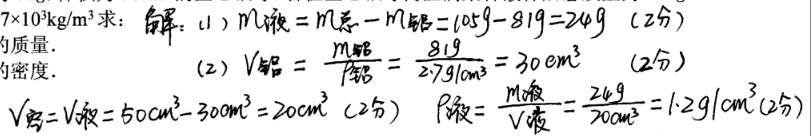 7×10³kg/m³求: 解:(1) m液=m总-m铝=105g-81g=24g (2分)
的质量.
的密度. (2) V铝=m铝/ρ铝=81g/2.7g/cm³=30cm³ (2分)
V空=V液=50cm³-30cm³=20cm³ (2分) ρ液=m液/V液=24g/20cm³=1.2g/cm³(2分)